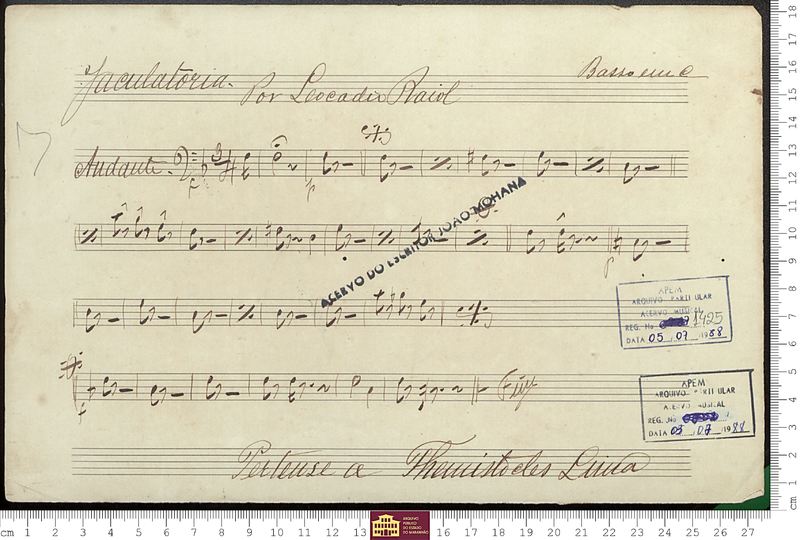 Jaculatória.
Por Leocadio Raiol
Basso em C
Andante.
ACERVO DO ESCRITOR JOÃO MOHANA
APEM
ARQUIVO PARTICULAR
ACERVO MUSICAL
REG. No 1425
DATA 05 07 1988
Fim
APEM
ARQUIVO PARTICULAR
ACERVO MUSICAL
REG. No
DATA 05 07 1988
Pertense a Themistocles Lima
cm 1 2 3 4 5 6 7 8 9 10 11 12 16 17 18 19 20 21 22 23 24 25 26 27
ARQUIVO
PÚBLICO
DO ESTADO
DO MARANHÃO
cm 1 2 3 4 5 6 7 8 9 10 11 12 13 14 15 16 17 18